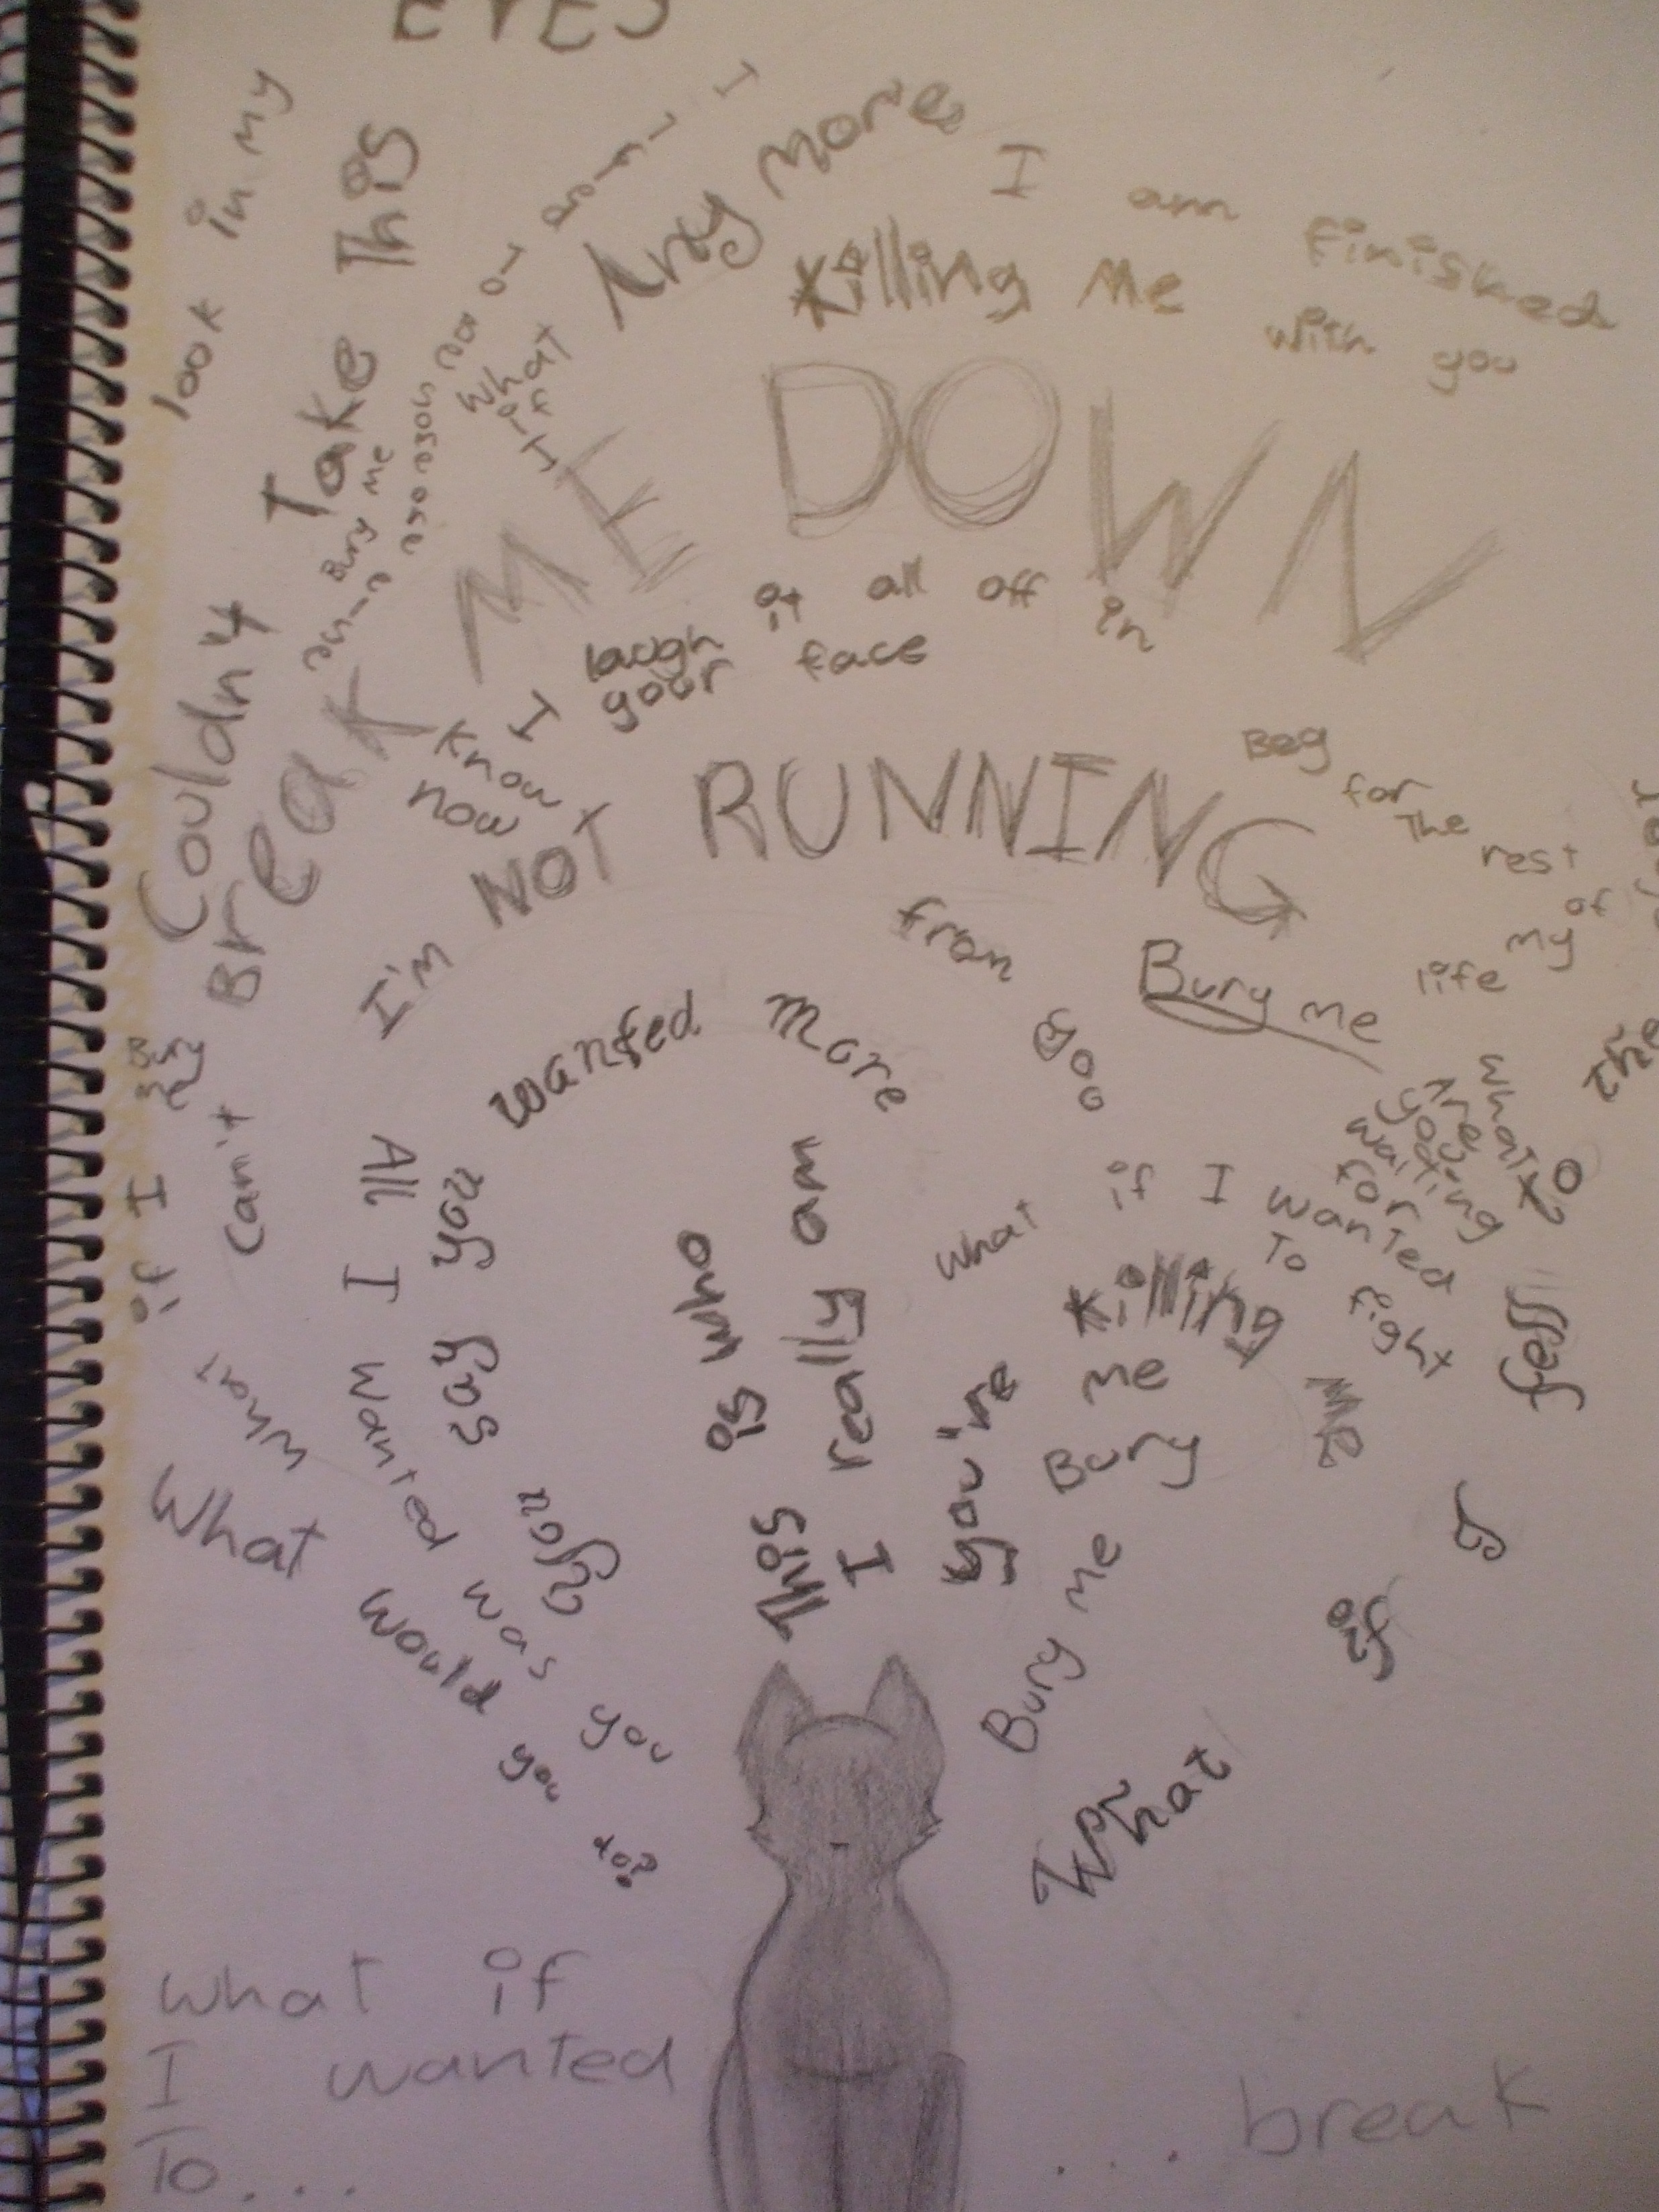 EYES
look in my
Couldn4 Take This Any More
I am finished
with you
Killing Me
What if I
Bury me
Can't Break ME DOWN
I know now
laugh it all off in
your face
I'm NOT RUNNING from you
Beg for The rest of my life
Bury me
What
Are you waiting for
All I wanted was you
wanted more
you say
What would you do?
What if I
This is who
I really am
what if I wanted To fight
you're killing me
Bury me
Bury me
What if
fell to the
what if
I wanted
To...
...break